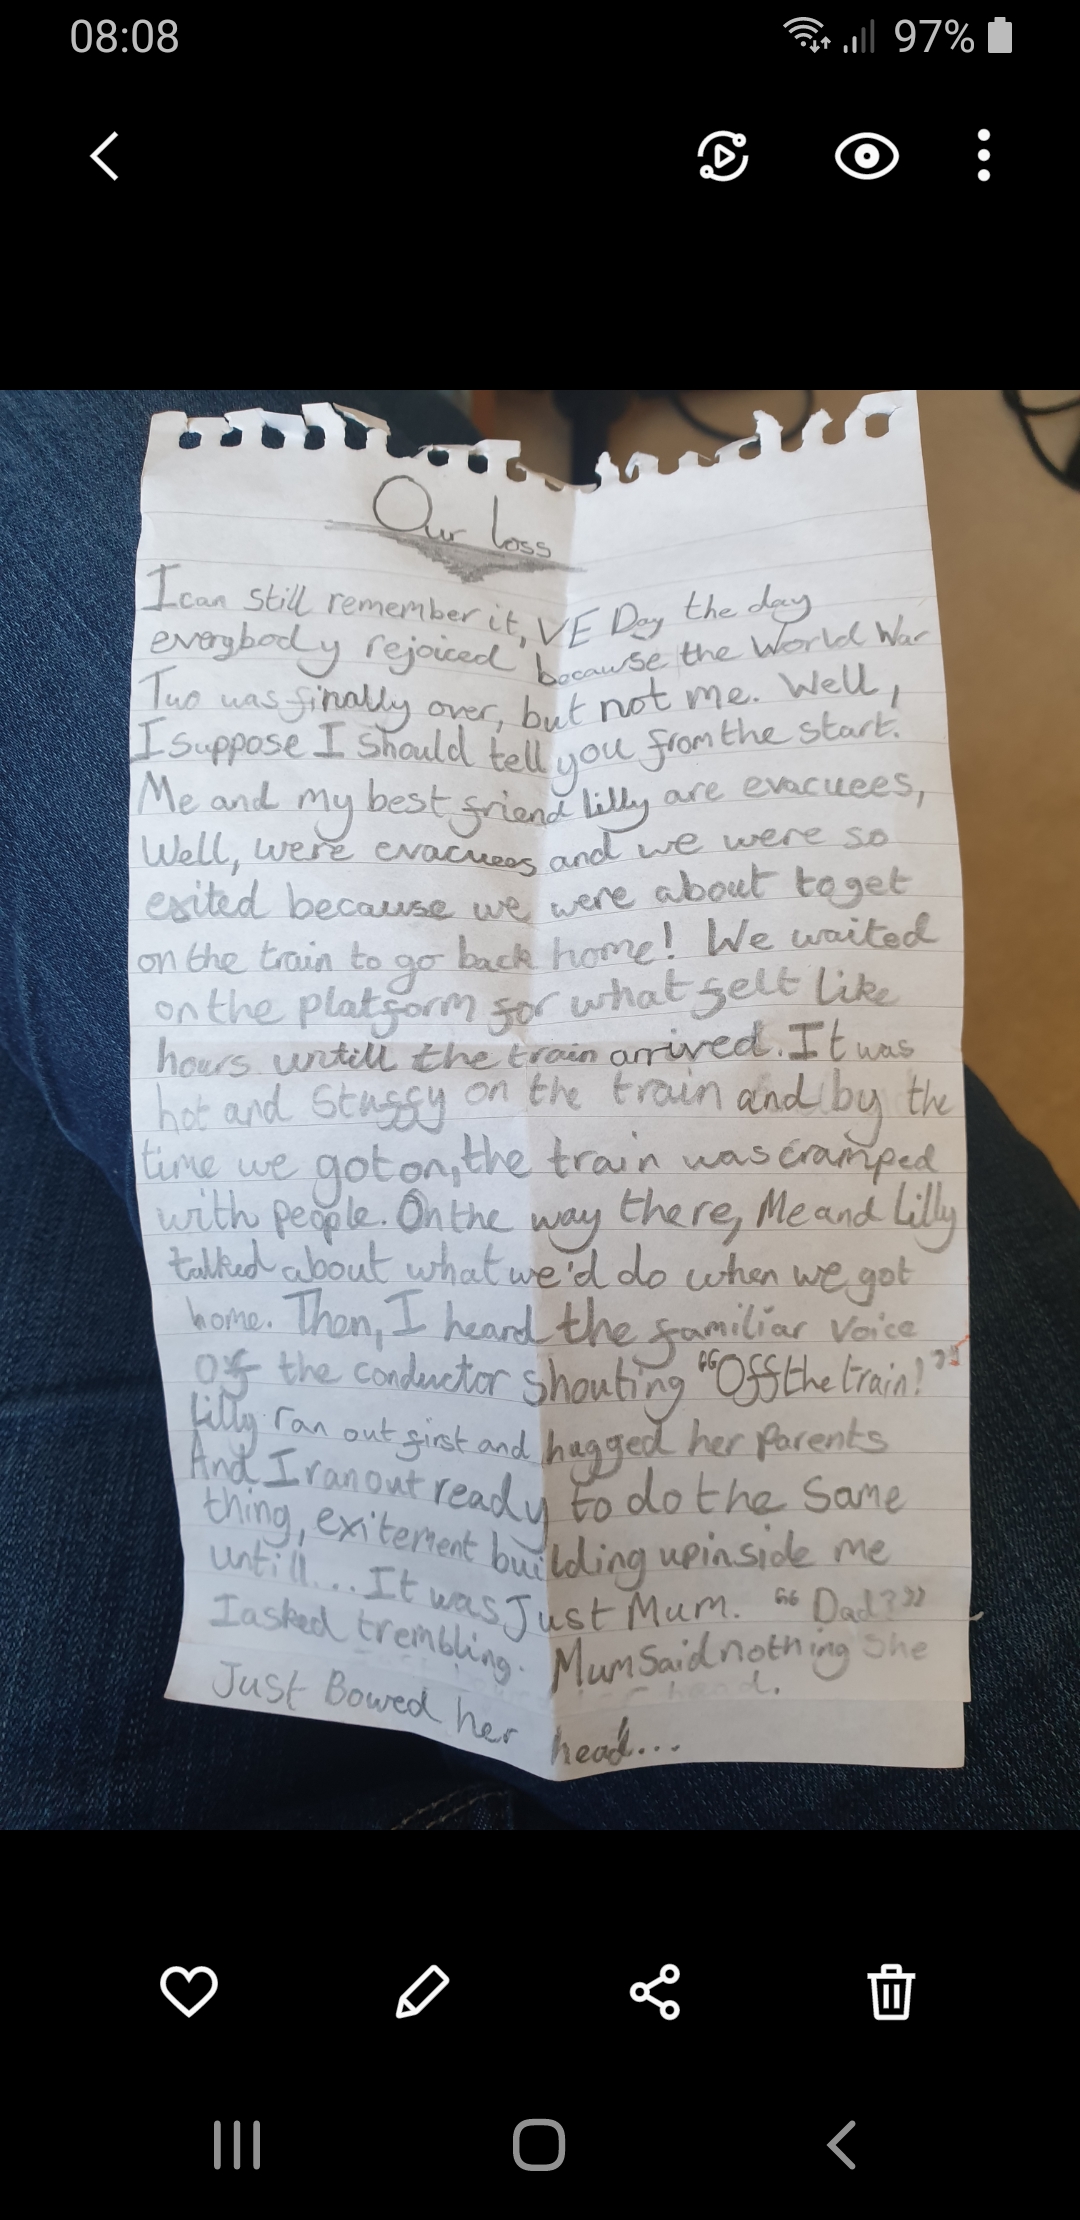 08:08
97%
Our loss
I can still remember it, VE Day the day
everybody rejoiced because the World War
Two was finally over, but not me. Well,
I suppose I should tell you from the start.
Me and my best friend lilly are evacuees,
Well, were evacuees and we were so
exited because we were about to get
on the train to go back home! We waited
on the platform for what felt like
hours untill the train arrived. It was
hot and Stuffy on the train and by the
time we got on, the train was cramped
with people. On the way there, Me and Lilly
talked about what we'd do when we got
home. Then, I heard the familiar voice
of the conductor shouting "Off the train!"
Lilly ran out first and hugged her parents
And I ran out ready to do the Same
thing, exitement building up inside me
untill... It was Just Mum. "Dad?"
I asked trembling. Mum Said nothing She
Just Bowed her head...